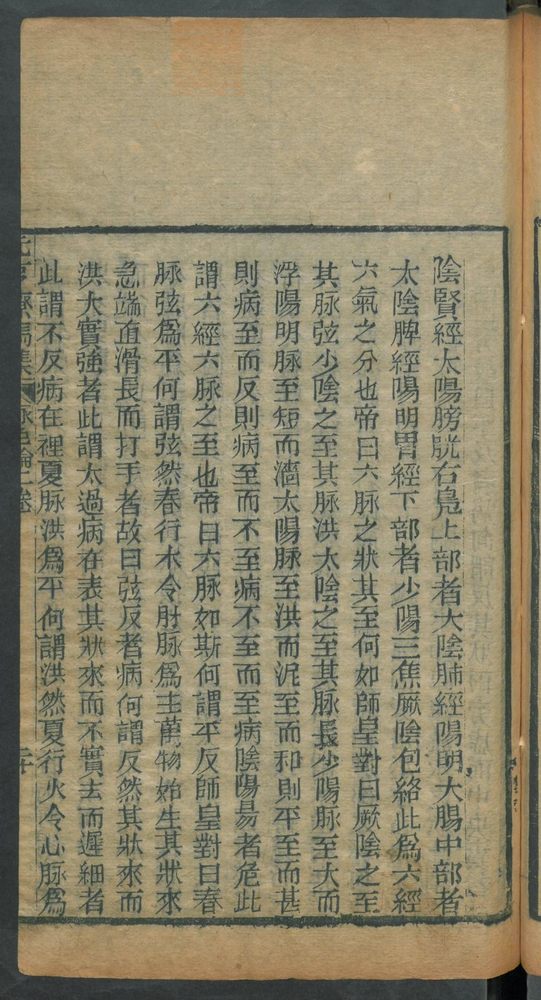 陰賢經太陽膀胱右鳧上部者大陰肺經陽明大腸中部者
太陰脾經陽明胃經下部者少陽三焦厥陰包絡此爲六經
六氣之分也帝曰六脉之狀其至何如師皇對曰厥陰之至
其脉弦少陰之至其脉洪太陰之至其脉長少陽脉至大而
浮陽明脉至短而濇太陽脉至洪而泥至而和則平至而甚
則病至而反則病至而不至病不至而至病陰陽昜者危此
謂六經六脉之至也帝曰六脉如斯何謂平反師皇對曰春
脉弦爲平何謂弦然春行木令肝脉爲主萬物始生其狀來
急端直滑長而打手者故曰弦反者病何謂反然其狀來而
洪大實強者此謂太過病在表其狀來而不實去而遲細者
此謂不反病在裡夏脉洪爲平何謂洪然夏行火令心脉爲
元亨療馬集 脉色論一卷 二十